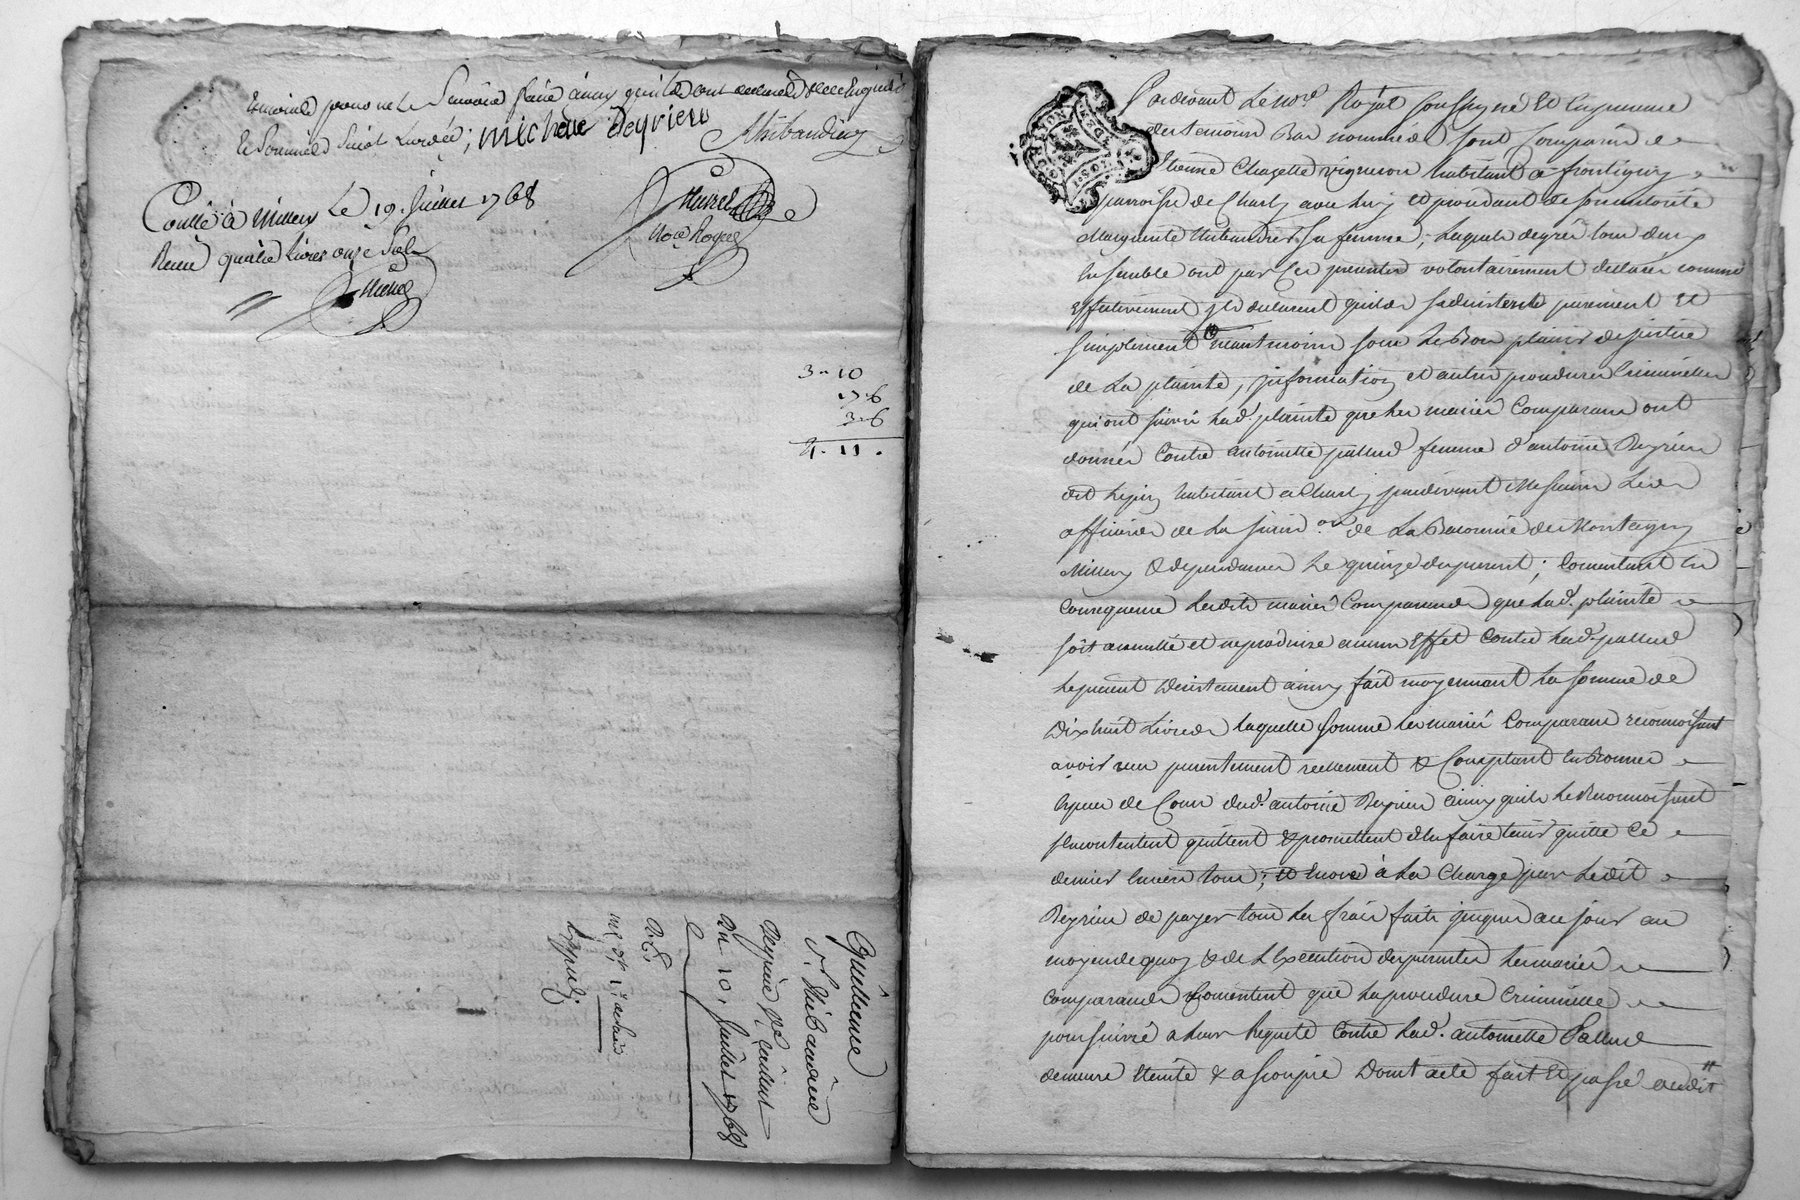 et moins pour ne le savoir faire ainsy qu'ils ont declaré de ce enquis
le sommés suivt l'ordce; michelle deyrieu Thibaudiey
Controllé à Millery Le 19. Juillet 1768
Receu quatre livres onze sols
Not.re Royal
3 - 10
17 - 6
3 - 6
4 - 11 -
Quittence
Sr. Thibaudiée
deyrieu
du 10. Juillet 1768
Pardevant Le Nore. Royal soussigné Et En presence
des temoins Bas nommés sont Comparus
Etienne Chazette vigneron habitant a frontigny
parroisse de Charly avec luy et procedant de son autorité
Marguerite Thibaudier sa femme; Lesquels de gré tous deux
Ensemble ont par Ces presentes volontairement declaré comme
Effectivement ils declarent qu'ils se desistent purement et
simplement neantmoins sous Le Bon plaisir de justice
de La plainte, information et autres procedures Criminelles
qui ont suivi Lad. plainte que Les mariés Comparans ont
donnée Contre antoinette pallud femme d'antoine Reyrieu
dit habitant a Charly pardevant Messieurs Les
officiers de La jurisd.on de La Baronnie de Montagny
Millery & dependances Le quinze du present; Consentant En
Consequence Lesdits mariés Comparands que Lad. plainte
soit annullée et ne produise aucun Effet Contre Lad. pallud
Le present Desistement ainsy fait moyennant La somme de
Dix huit Livres Laquelle somme Les mariés Comparans reconnoissent
avoir reçu presentement reellement & Comptant En Bonnes
Especes de Cours dud. antoine Reyrieu ainsy qu'ils Le Reconnoissent
s'en contentent quittent & promettent d'en faire tenir quitte Ce
dernier Envers tous; Et Encore à La Charge par Ledit
Reyrieu de payer tous Les frais faits jusques au jour au
moyen de quoy & de L'Execution des presentes Les mariés
Comparands Consentent que La procedure Criminelle
poursuivie a Leur Requete Contre Lad. antoinette Pallud
demeure Eteinte & assoupie Dont acte fait Et passé audit